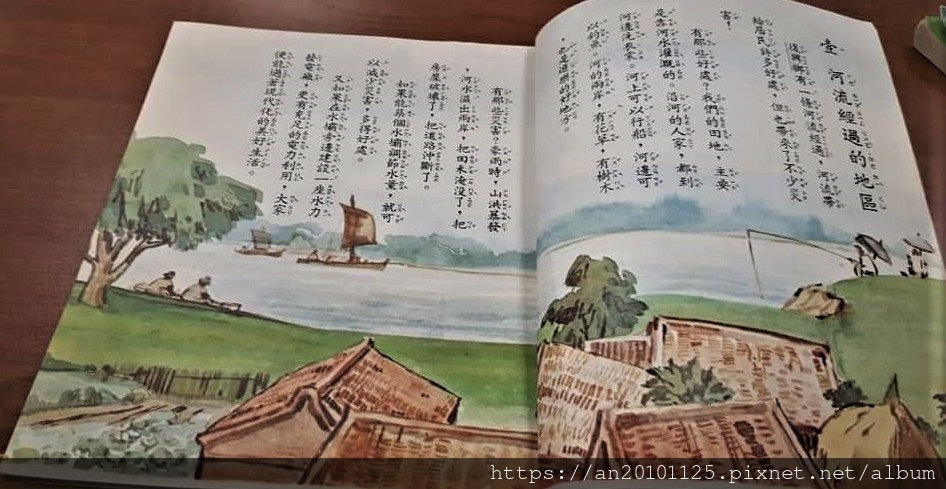 壹　河流經過的地區
復興鄉有一條河流經過，河流帶
給居民許多好處，但也帶來了不少災
害！
有那些好處？我們的田地，主要
是靠河水灌溉的。沿河的人家，都到
河邊洗衣家。河上可以行船，河邊可
以釣魚。河的兩岸，有花草，有樹木
，也是遊樂的好地方。
有那些災害？豪雨時，山洪暴發
，河水溢出兩岸，把田禾淹沒了，把
房屋破壞了，把道路沖斷了。
如果能築個水壩調節水量，就可
以減少災害，多得好處。
又如果在水壩旁邊建設一座水力
發電廠，更有充足的電力利用，大家
便能過著現代化的美好生活。
https://an20101125.pixnet.net/album